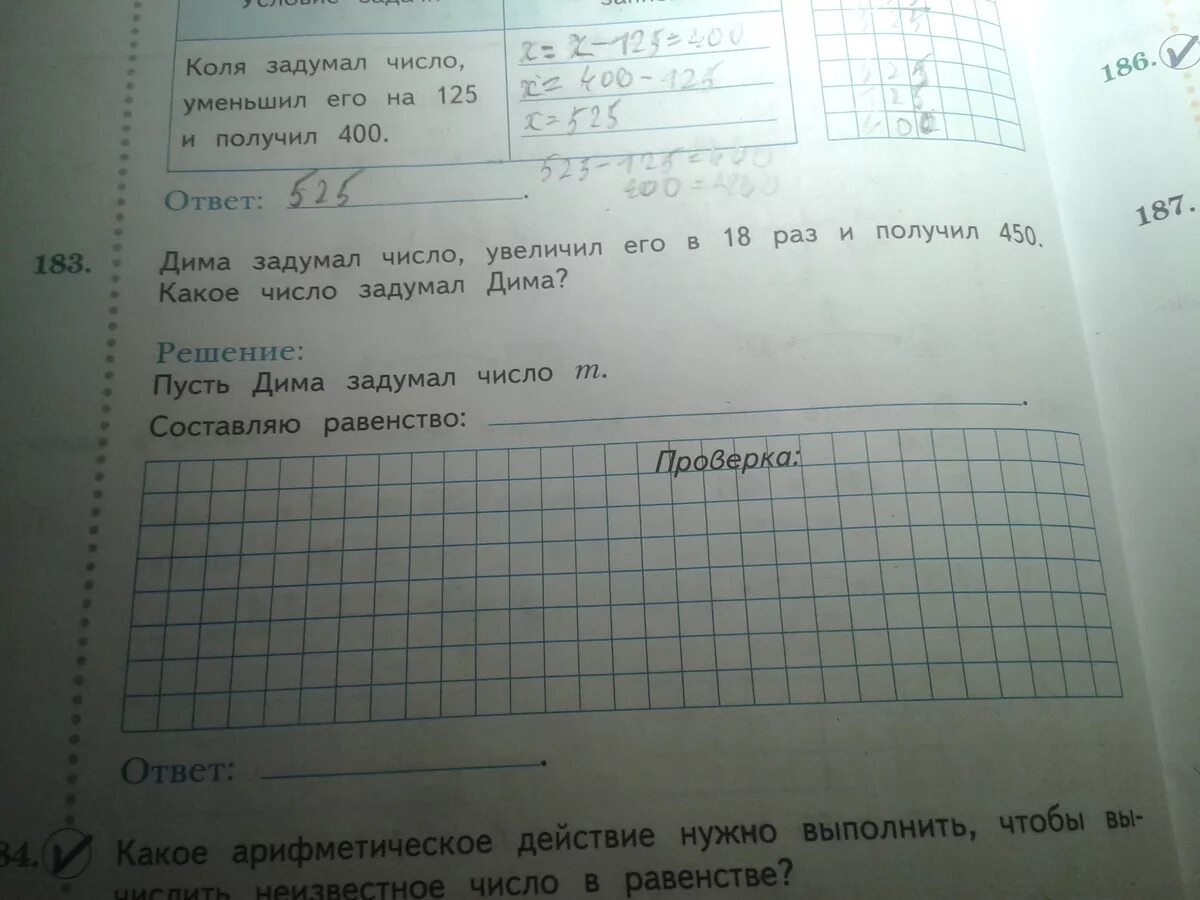 Условие задачи
Коля задумал число,
уменьшил его на 125
и получил 400.
x = x - 125 = 400
x = 400 - 125
x = 525
525
125
400
186.
525 - 125 = 400
Ответ: 525.
187.
183. Дима задумал число, увеличил его в 18 раз и получил 450.
Какое число задумал Дима?
Решение:
Пусть Дима задумал число m.
Составляю равенство: .
Проверка:
Ответ: .
84. Какое арифметическое действие нужно выполнить, чтобы вы-
числить неизвестное число в равенстве?